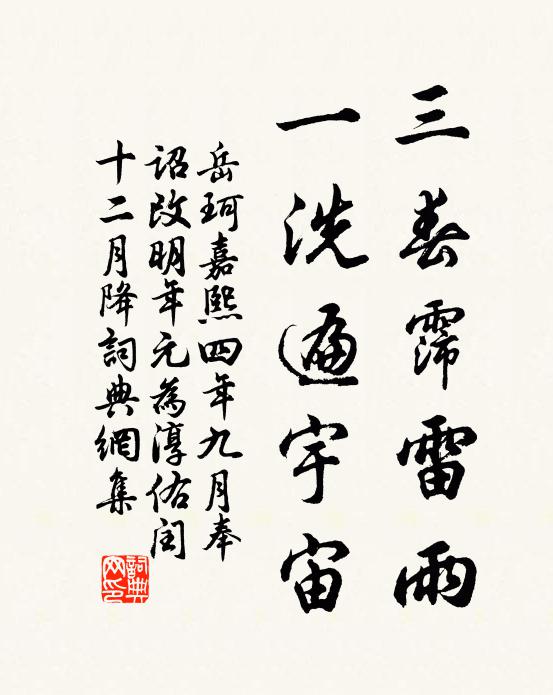 三春霈雷雨
一洗遍宇宙
岳珂嘉熙四年九月奉
诏改明年元為淳佑闰
十二月降詞典網集
詞典网印